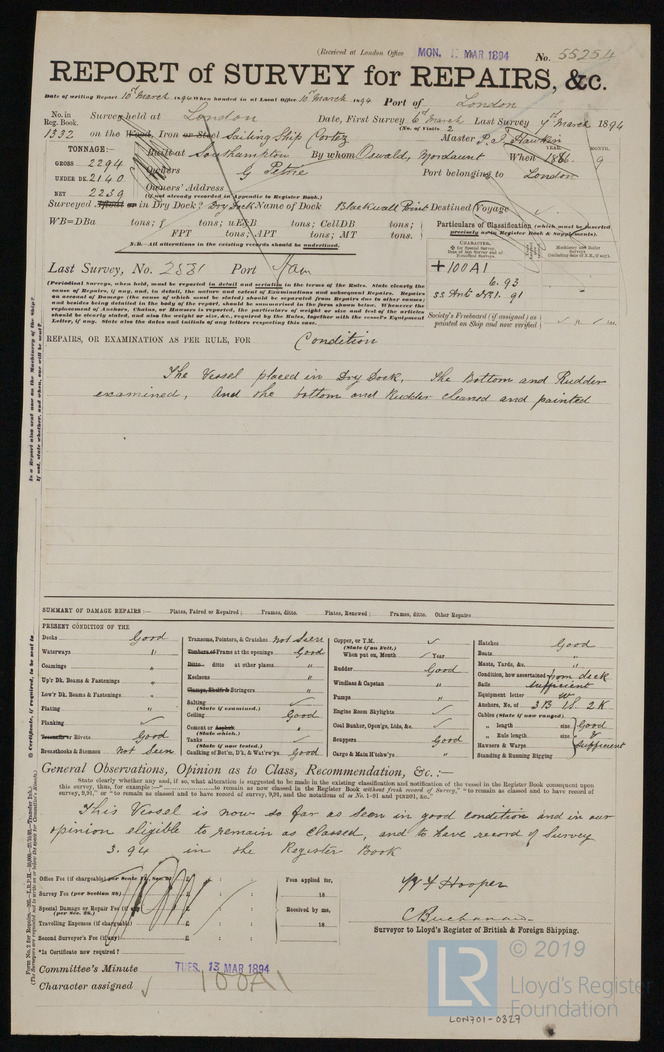 (Received at London Office MON. 12 MAR 1894 No. 55254
REPORT of SURVEY for REPAIRS, &c.
Date of writing Report 10th March 1894 When handed in at Local Office 10th March 1894 Port of London
No. in Reg. Book. Survey held at London Date, First Survey 6th March Last Survey 7th March 1894
(No. of Visits 2
1332 on the Wood, Iron or Steel Sailing Ship Cortez Master P. J. Hawkin
TONNAGE:— Built at Southampton By whom Oswald, Mordaunt When YEAR. MONTH. 9
GROSS 2294
UNDER DK. 2140 Owners G Petrie Port belonging to London
NET 2239 Owners' Address
(if not already recorded in Appendix to Register Book.)
Surveyed Afloat or in Dry Dock? Dry Dock Name of Dock Blackwall Point Destined Voyage
WB=DBa tons; f tons; uE&B tons; CellDB tons;
FPT tons; APT tons; MT tons.
N.B.—All alterations in the existing records should be underlined.
Particulars of Classification (which must be inserted precisely as in Register Book & Supplements).
CHARACTER.
+100A1
6.93
91
Last Survey, No. 2581 Port Ham
(Periodical Surveys, when held, must be reported in detail and seriatim in the terms of the Rules. State clearly the cause of Repairs, if any, and, in detail, the nature and extent of Examinations and subsequent Repairs. Repairs on account of Damage (the cause of which must be stated) should be separated from Repairs due to other causes; and besides being detailed in the body of the report, should be summarised in the form shown below. Whenever the replacement of Anchors, Chains, or Hawsers is reported, the particulars of weight or size and test of the articles should be clearly stated, and also the weight or size, &c., required by the Rules, together with the vessel's Equipment Letter, if any. State also the dates and initials of any letters respecting this case.
Society's Freeboard (if assigned) as painted on Ship and now verified
REPAIRS, OR EXAMINATION AS PER RULE, FOR Condition
The Vessel placed in Dry Dock, The Bottom and Rudder
examined, And the bottom and Rudder cleaned and painted
SUMMARY OF DAMAGE REPAIRS:— Plates, Faired or Repaired; Frames, ditto. Plates, Renewed; Frames, ditto. Other Repairs
PRESENT CONDITION OF THE
Decks Good
Waterways "
Coamings "
Up'r Dk. Beams & Fastenings "
Low'r Dk. Beams & Fastenings "
Plating "
Planking ✓
Treenails or Rivets Good
Breasthooks & Stemson Not Seen
Transoms, Pointers, & Crutches Not Seen
Timbers of Frame at the openings Good
Ditto ditto at other places "
Keelsons "
Clamps, Shelfs & Stringers "
Salting ✓
(State if examined.)
Ceiling Good
Cement or Asphalt "
(State which.)
Tanks ✓
(State if now tested.)
Caulking of Bot'm, D'k, & Wat'rw'ys Good
Copper, or Y.M. ✓
(State if on Felt.)
When put on, Month ✓ Year
Rudder Good
Windlass & Capstan "
Pumps "
Engine Room Skylights ✓
Coal Bunker, Open'gs, Lids, &c. ✓
Scuppers Good
Cargo & Main H'tchw'ys "
Hatches Good
Boats "
Masts, Yards, &c. "
Condition, how ascertained from deck
Sails sufficient
Equipment letter W
Anchors, No. of 3B 1S 2K
Cables (State if now ranged) Good
" length size
" Rule length size
Hawsers & Warps sufficient
Standing & Running Rigging
General Observations, Opinion as to Class, Recommendation, &c.:—
State clearly whether any, and if so, what alteration is suggested to be made in the existing classification and notification of the vessel in the Register Book consequent upon
this survey, thus, for example:—" to remain as now classed in the Register Book without fresh record of Survey," "to remain as classed and to have record of
survey, 9,91," or "to remain as classed and to have record of survey, 9,91, and the notations of ss No. 1-91 and ptNB91, &c."
This Vessel is now so far as seen in good condition and in our
opinion eligible to remain as Classed, and to have record of Survey
3.94 in the Register Book
Office Fee (if chargeable)
Survey Fee (per Section 28)
Special Damage or Repair Fee (if any)
(per Sec. 28.)
Travelling Expenses (if chargeable)
Second Surveyor's Fee (if any)
*Is Certificate now required?
Fees applied for,
18
Received by me,
18
W J Hooper
C Buchanan
Surveyor to Lloyd's Register of British & Foreign Shipping.
Committee's Minute TUES. 13 MAR 1894
Character assigned 100A1
LR
© 2019
Lloyd's Register
Foundation
LON701-0327